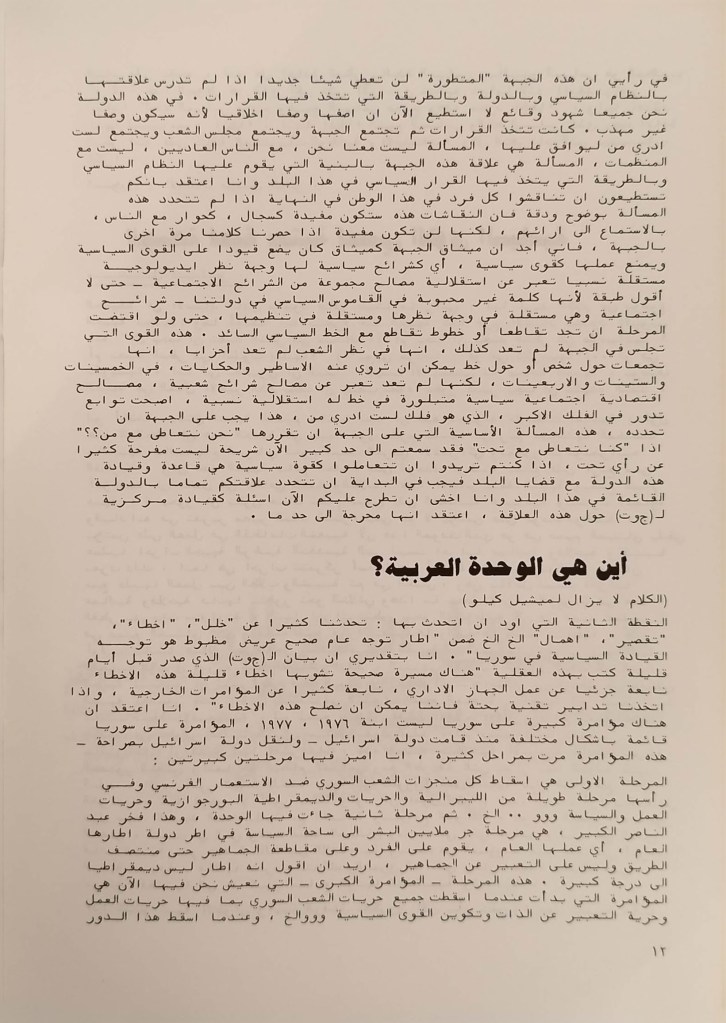 في رأيي ان هذه الجبهة "المتطورة" لن تعطي شيئا جديدا اذا لم تدرس علاقتها
بالنظام السياسي وبالدولة وبالطريقة التي تتخذ فيها القرارات . في هذه الدولة
نحن جميعا شهود وقائع لا استطيع الآن ان اصفها وصفا اخلاقيا لأنه سيكون وصفا
غير مهذب . كانت تتخذ القرارات ثم تجتمع الجبهة ويجتمع مجلس الشعب ويجتمع لست
ادري من ليوافق عليها ، المسألة ليست معنا نحن ، مع الناس العاديين ، ليست مع
المنظمات ، المسألة هي علاقة هذه الجبهة بالبنية التي يقوم عليها النظام السياسي
وبالطريقة التي يتخذ فيها القرار السياسي في هذا البلد وانا اعتقد بانكم
تستطيعون ان تناقشوا كل فرد في هذا الوطن في النهاية اذا لم تتحدد هذه
المسألة بوضوح ودقة فان النقاشات هذه ستكون مفيدة كسجال ، كحوار مع الناس ،
بالاستماع الى ارائهم ، لكنها لن تكون مفيدة اذا حصرنا كلامنا مرة اخرى
بالجبهة ، فاني أجد ان ميثاق الجبهة كميثاق كان يضع قيودا على القوى السياسية
ويمنع عملها كقوى سياسية ، أي كشرائح سياسية لها وجهة نظر ايديولوجية
مستقلة نسبيا تعبر عن استقلالية مصالح مجموعة من الشرائح الاجتماعية ـ حتى لا
أقول طبقة لأنها كلمة غير محبوبة في القاموس السياسي في دولتنا ـ شرائح
اجتماعية وهي مستقلة في وجهة نظرها ومستقلة في تنظيمها ، حتى ولو اقتضت
المرحلة ان تجد تقاطعا أو خطوط تقاطع مع الخط السياسي السائد . هذه القوى التي
تجلس في الجبهة لم تعد كذلك ، انها في نظر الشعب لم تعد أحزابا ، انها
تجمعات حول شخص أو حول خط يمكن ان تروي عنه الاساطير والحكايات ، في الخمسينات
والستينات والاربعينات ، لكنها لم تعد تعبر عن مصالح شرائح شعبية ، مصالح
اقتصادية اجتماعية سياسية متبلورة في خط له استقلالية نسبية ، اصبحت توابع
تدور في الفلك الاكبر ، الذي هو فلك لست ادري من ، هذا يجب على الجبهة ان
تحدده ، هذه المسألة الأساسية التي على الجبهة ان تقررها "نحن نتعاطى مع من؟؟"
اذا "كنا نتعاطى مع تحت" فقد سمعتم الى حد كبير الآن شريحة ليست مفرحة كثيرا
عن رأي تحت ، اذا كنتم تريدوا ان تتعاملوا كقوة سياسية هي قاعدة وقيادة
هذه الدولة مع قضايا البلد فيجب في البداية ان تتحدد علاقتكم تماما بالدولة
القائمة في هذا البلد وانا اخشى ان تطرح عليكم الآن اسئلة كقيادة مركزية
لـ(جوت) حول هذه العلاقة ، اعتقد انها محرجة الى حد ما .
أين هي الوحدة العربية؟
(الكلام لا يزال لميشيل كيلو)
النقطة الثانية التي اود ان اتحدث بها : تحدثنا كثيرا عن "خلل"، "اخطاء"،
"تقصير"، "اهمال" الخ الخ ضمن "اطار توجه عام صحيح عريض مظبوط هو توجه
القيادة السياسية في سوريا" . انا بتقديري ان بيان الـ(جوت) الذي صدر قبل أيام
قليلة كتب بهذه العقلية "هناك مسيرة صحيحة تشوبها اخطاء قليلة هذه الاخطاء
نابعة جزئيا عن عمل الجهاز الاداري ، نابعة كثيرا عن المؤامرات الخارجية ، واذا
اتخذنا تدابير تقنية بحتة فاننا يمكن ان نصلح هذه الاخطاء" . انا اعتقد ان
هناك مؤامرة كبيرة على سوريا ليست ابنة ١٩٧٦ ، ١٩٧٧ ، المؤامرة على سوريا
قائمة باشكال مختلفة منذ قامت دولة اسرائيل ـ ولنقل دولة اسرائيل بصراحة ـ
هذه المؤامرة مرت بمراحل كثيرة ، انا اميز فيها مرحلتين كبيرتين :
المرحلة الاولى هي اسقاط كل منجزات الشعب السوري ضد الاستعمار الفرنسي وفي
رأسها مرحلة طويلة من الليبرالية والحريات والديمقراطية البورجوازية وحريات
العمل والسياسة ووو .. الخ . ثم مرحلة ثانية جاءت فيها الوحدة ، وهذا فخر عبد
الناصر الكبير ، هي مرحلة جر ملايين البشر الى ساحة السياسة في اطر دولة اطارها
العام ، أي عملها العام ، يقوم على الفرد وعلى مقاطعة الجماهير حتى منتصف
الطريق وليس على التعبير عن الجماهير ، اريد ان اقول انه اطار ليس ديمقراطيا
الى درجة كبيرة . هذه المرحلة ـ المؤامرة الكبرى ـ التي نعيش نحن فيها الآن هي
المؤامرة التي بدأت عندما اسقطت جميع حريات الشعب السوري بما فيها حريات العمل
وحرية التعبير عن الذات وتكوين القوى السياسية وووالخ ، وعندما اسقط هذا الدور
١٢